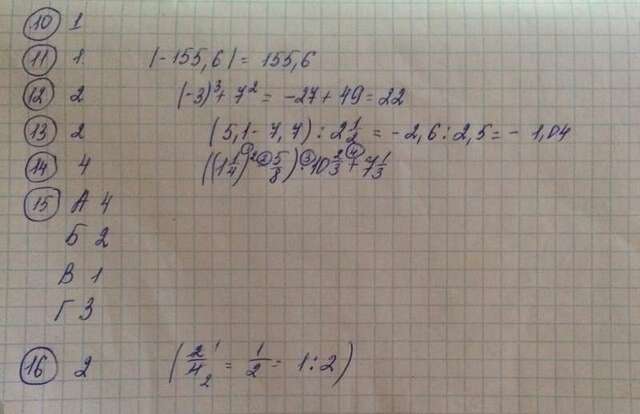 10 1
11 1. |-155,6| = 155,6
12 2 (-3)³ + 7² = -27 + 49 = 22
13 2 (5,1 - 7,7) : 2 1/2 = -2,6 : 2,5 = - 1,04
14 4 ((1 1/4)² - 5/8) · 10 2/3 + 7 1/3
15 А 4
Б 2
В 1
Г 3
16 2 (2/4 = 1/2 = 1 : 2)